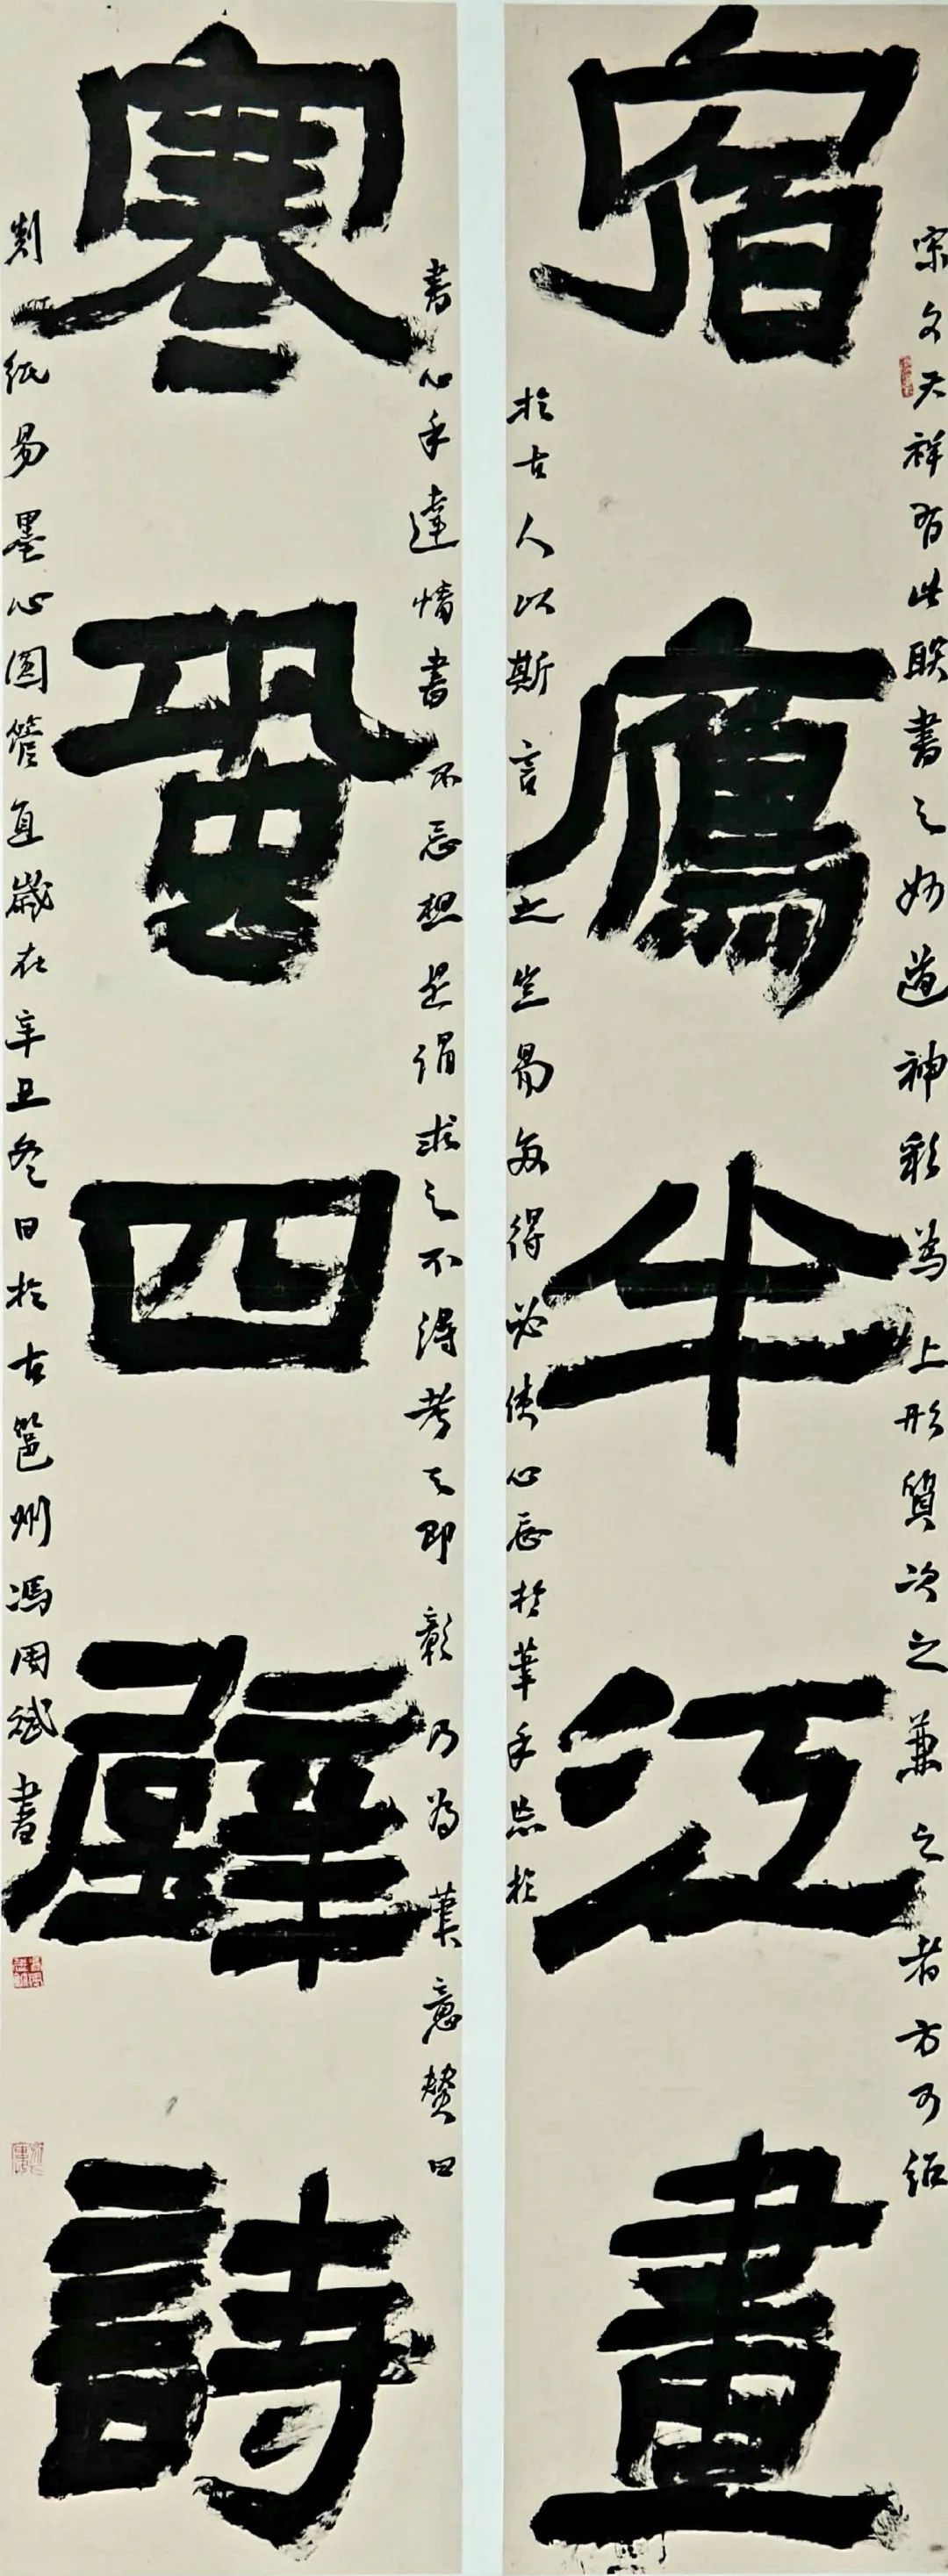 宿雁半江畫
寒蛩四壁詩
宋文天祥有此聯書之妙道神彩為上形質次之兼之者方可紹
於古人以斯言之豈易多得必使心忘於筆手忘於
書心手達情書不忘想是謂求之不得考之即彰乃為筆意贊曰
剡紙易墨心圓管直歲在辛丑冬日於古邕州馮周斌書